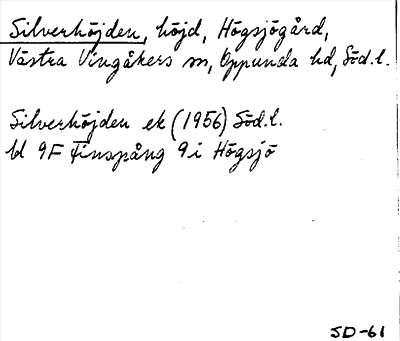 Silverhöjden, höjd, Högsjögård,
Västra Vingåkers sn, Oppunda hd, Söd.l.
Silverhöjden ek (1956) Söd.l.
bl 9F Finspång 9i Högsjö
SD-61